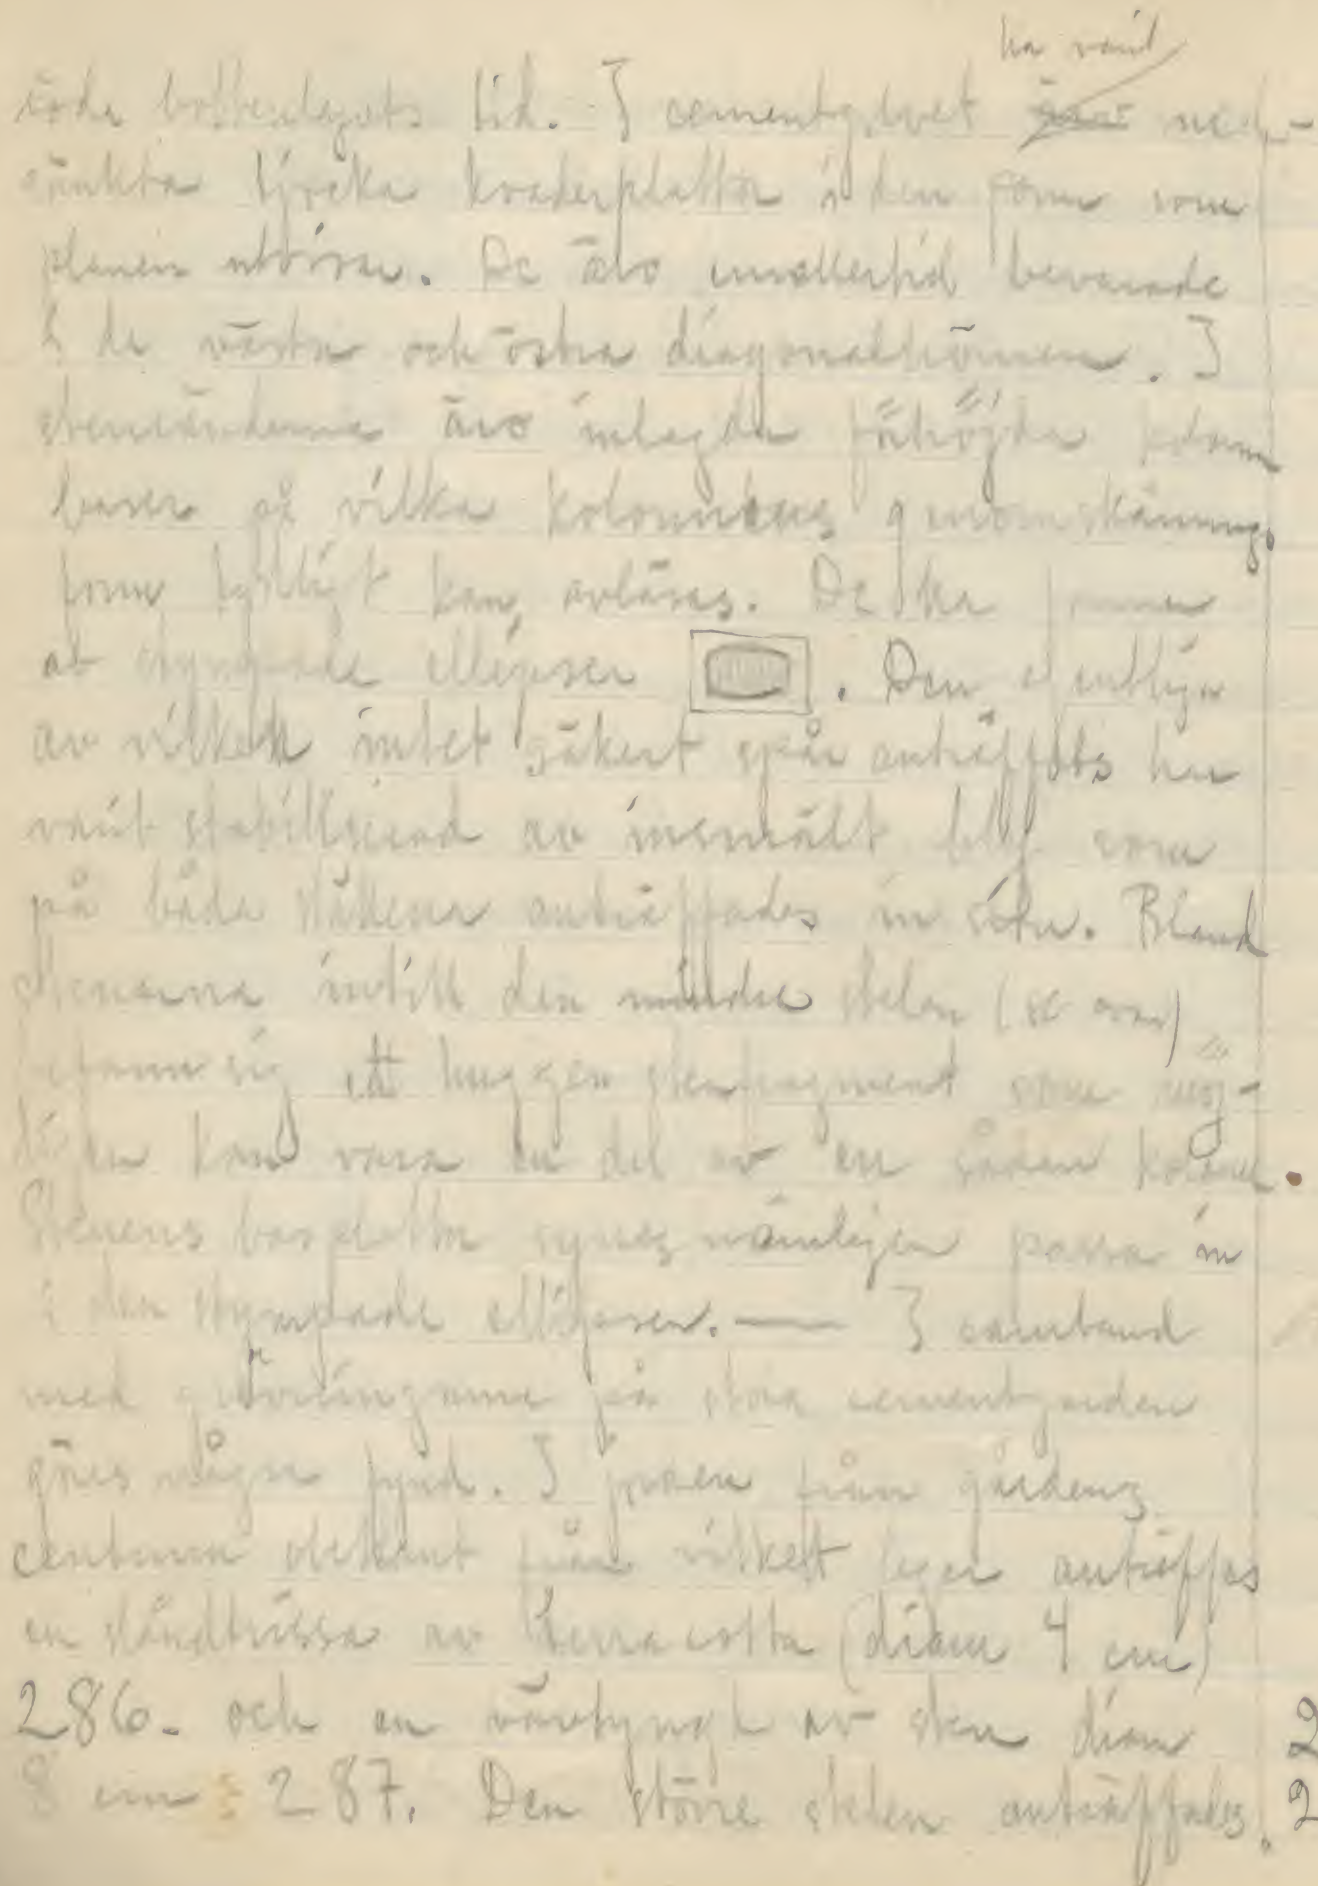 ha varit
röda bottenlagrets tid. I cementgolvet ned-
sänkta tjocka kvaderplattor i den form som
planen utvisar. De äro emellertid bevarade
i de västra och östra diagonalhörnen. I
stenränderna äro inlagda förhöjda kolonn
baser på vilka kolonnens genomskärnings
form tydligt kan avläsas. De ha formen
av stympade ellipser . Den egentliga
av vilken intet säkert spår anträffats har
varit stabiliserad av insmält bly som
på båda ställena anträffades in situ. Bland
stenarna intill den mindre stelen (se ovan)
befann sig ett huggen stenfragment som möj-
ligen kan vara en del av en sådan kolonn.
Stenens basplatta synes nämligen passa in
i den stympade ellipsen. — I samband
med grävningarna på stora cementgården
göres några fynd. I jorden från gårdens
centrum obekant från vilket lager anträffas
en sländtrissa av terracotta (diam 4 cm)
286. och en vävtyngd av sten diam 2
8 cm : 287. Den större stelen anträffades. 2